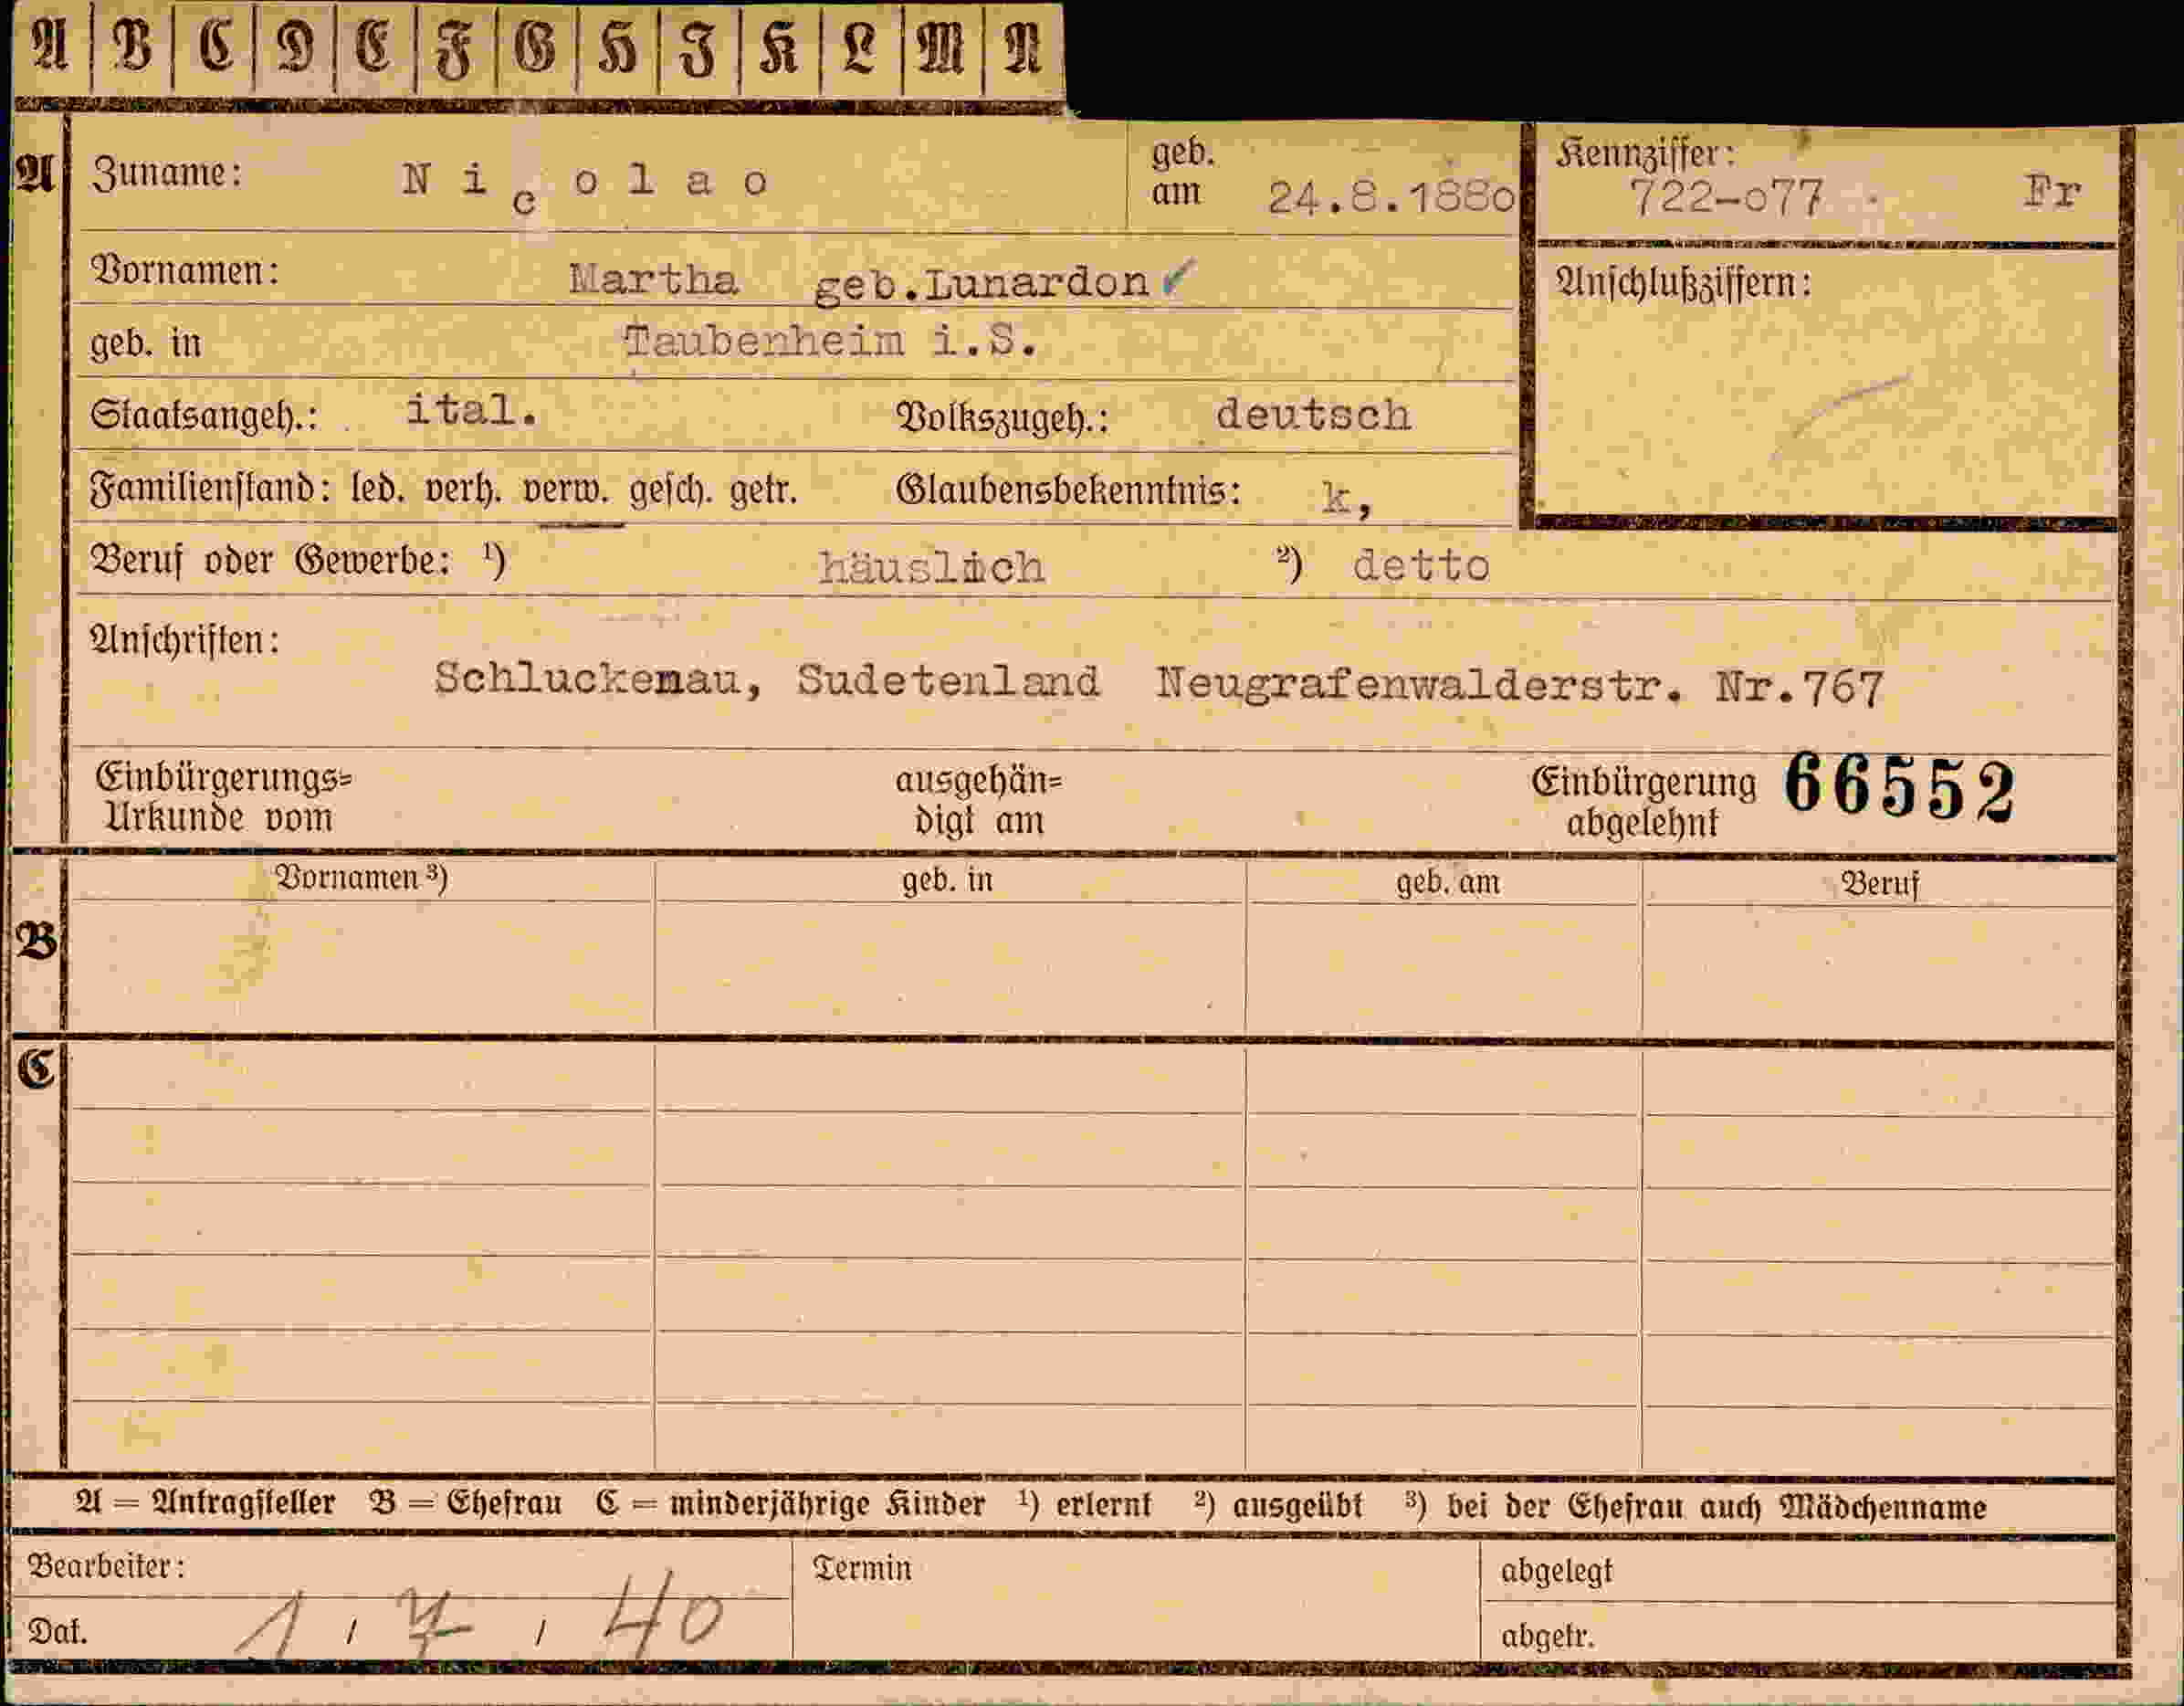 A B C D E F G H J K L M N
A Zuname: Nicolao geb. am 24.8.188o Kennziffer: 722-o77 Fr
Vornamen: Martha geb.Lunardon ✓ Anschlußziffern:
geb. in Taubenheim i.S.
Staatsangeh.: ital. Volkszugeh.: deutsch
Familienstand: led. verh. verw. gesch. getr. Glaubensbekenntnis: k,
Beruf oder Gewerbe: ¹) häuslich ²) detto
Anschriften:
Schluckenau, Sudetenland Neugrafenwalderstr. Nr.767
Einbürgerungs= ausgehän= Einbürgerung 66552
Urkunde vom digt am abgelehnt
Vornamen ³) geb. in geb. am Beruf
B
C
A = Antragsteller B = Ehefrau C = minderjährige Kinder ¹) erlernt ²) ausgeübt ³) bei der Ehefrau auch Mädchenname
Bearbeiter: Termin abgelegt
Dat. 1 / 7 / 40 abgetr.